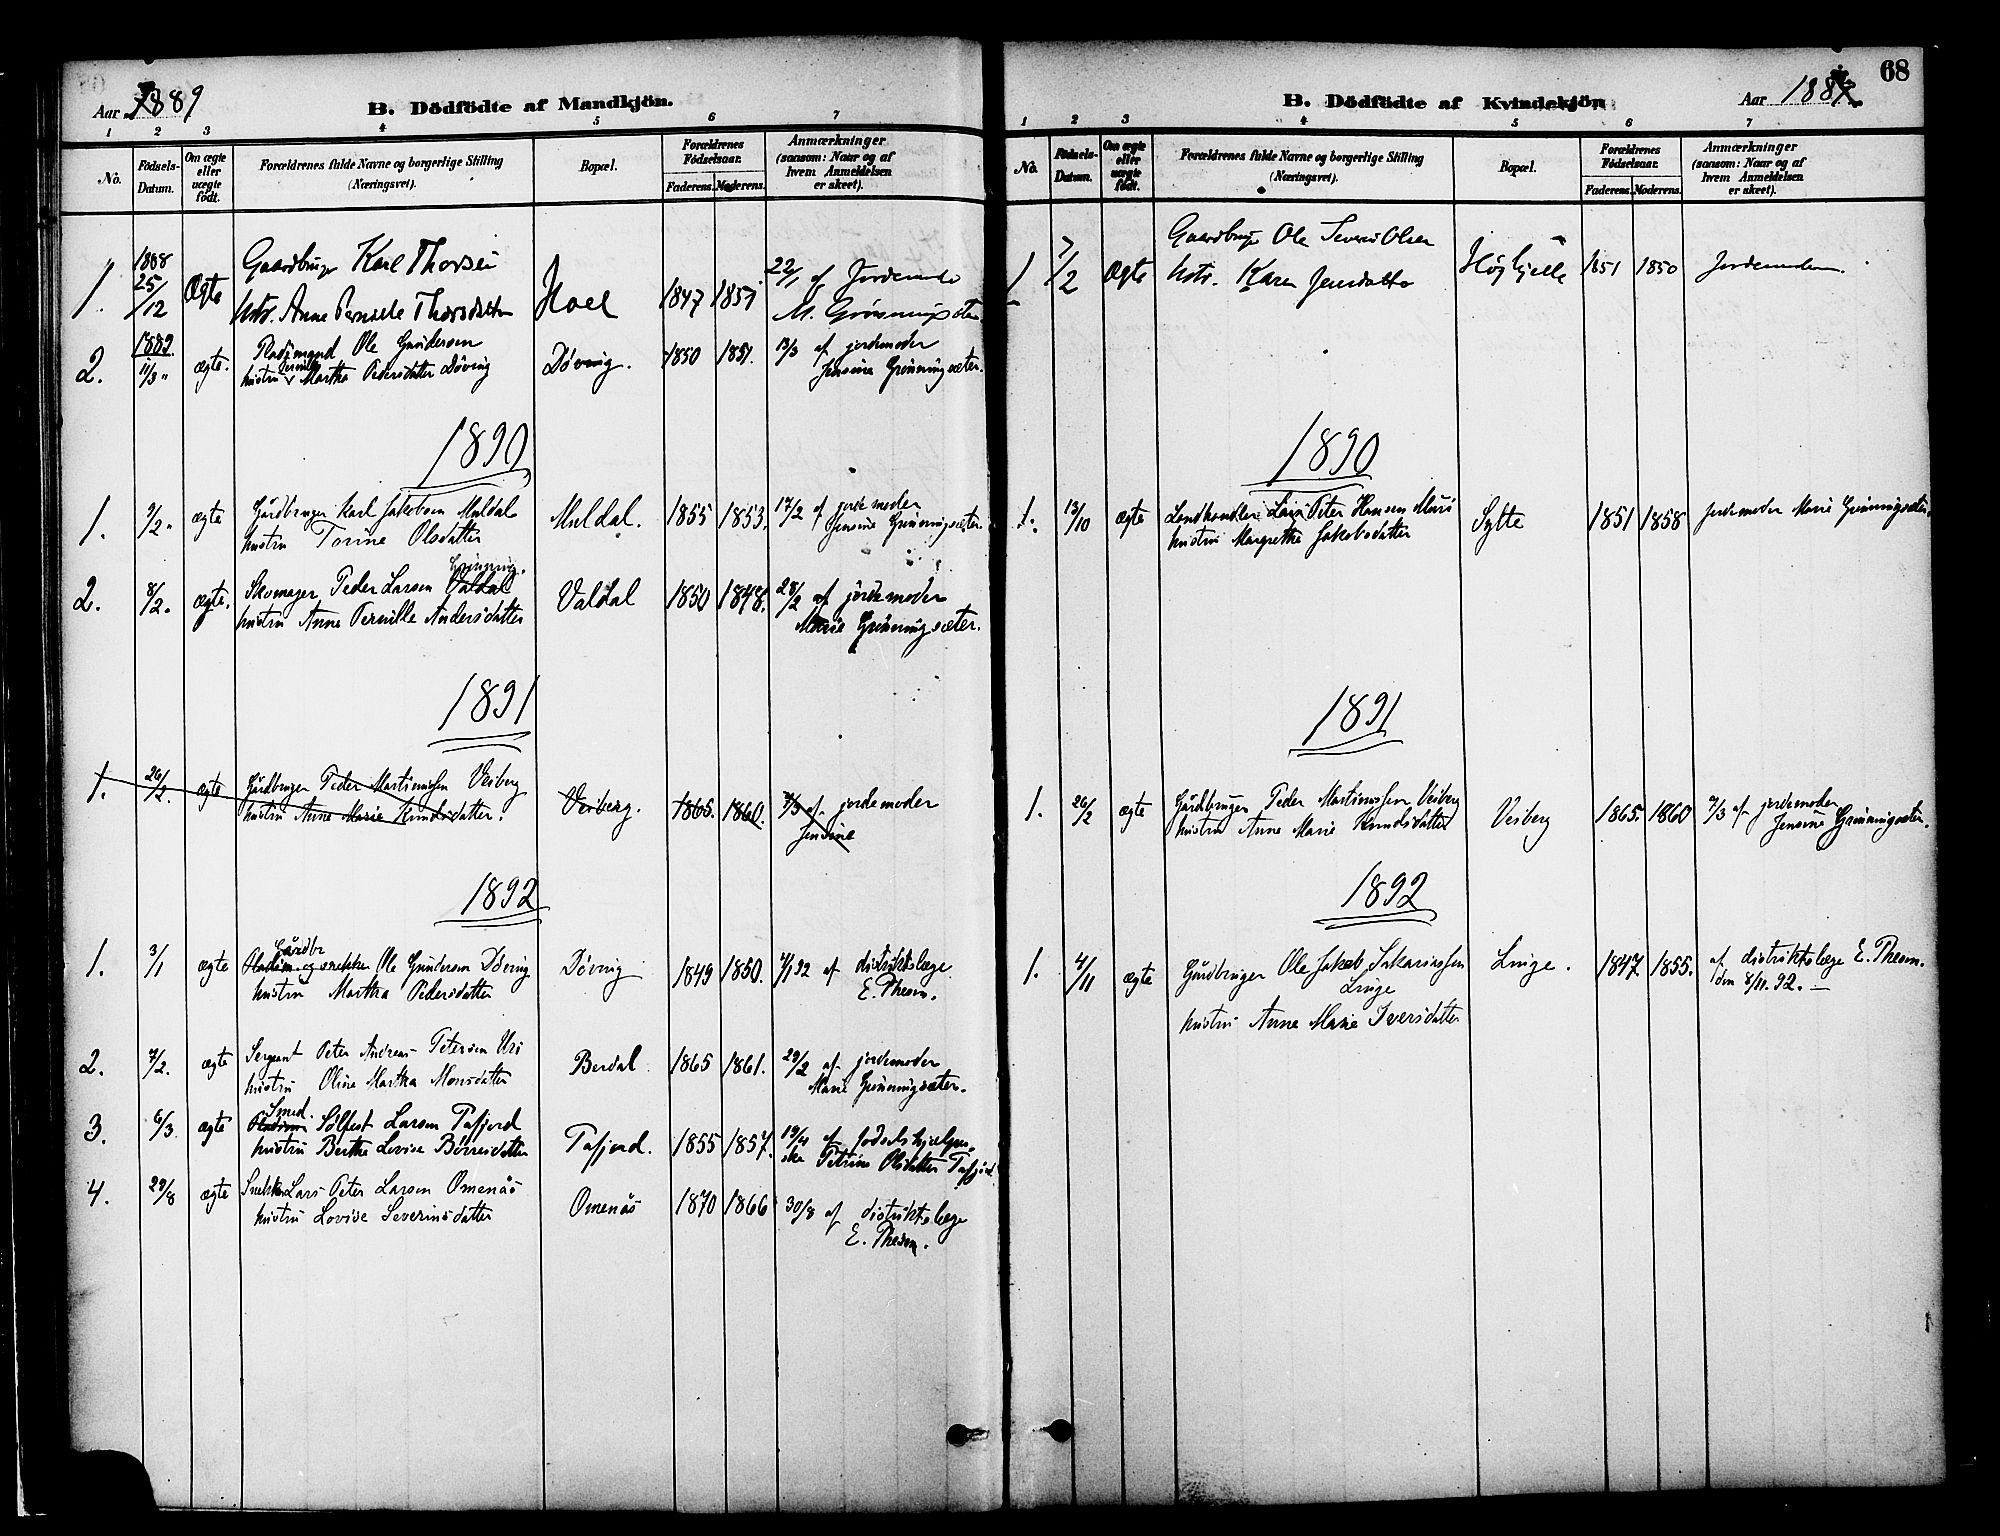 Aar 1889
B. Dödfödte af Mandkjön.
1 2 3 4 5 6 7
No.
Födsels-Datum.
Om ægte eller uægte födt.
Forældrenes fulde Navne og borgerlige Stilling (Næringsvei).
Bopæl.
Forældrenes Födselsaar.
Faderens. Moderens.
Anmærkninger (saasom: Naar og af hvem Anmeldelsen er skeet).
1. 1888 25/12 Ægte Gaardbruger Karl Thorsen Hoel 1847 1851 22/1 af Jordemoder
Ustr. Anne Pernille Thorsdatter M. Grönningsæter
2. 1889. 11/3 " ægte. Pladsmand Ole Gundersen Döving. 1850 1851. 13/3 af jordemoder
hustru Pernille Martha Pedersdatter Döving Jensine Grönningsæter.
1890
1. 9/2 " ægte Gårdbruger Karl Jakobsen Muldal Muldal. 1855 1853. 17/2 af jordemoder
hustru Torine Olsdatter Jensine Grönningsæter.
Grönning.
2. 8/2. ægte. Skomager Peder Larsen Valdal Valdal 1850 1848. 28/2 af jordemoder
hustru Anne Pernille Andersdatter Marie Grönningsæter.
1891
1. 26/2. ægte Gårdbruger Peder Martinussen Veiberg Veiberg. 1865. 1860. 7/3 af jordemoder
hustru Anne Marie Knudsdatter. Jensine
1892
Gårdbr
1. 3/1 ægte Pladsm. og snekker Ole Gundersen Döving Döving 1849 1850. 4/1 92 af distriktslæge
hustru Martha Pedersdatter E. Thesen.
2. 7/2. ægte Sergeant Peter Andreas Petersen Uri Berdal 1865 1861. 29/2 af jordemoder
hustru Oline Martha Monsdatter Marie Grönningsæter.
Smed.
3. 6/3 ægte Pladsm Sölfest Larsen Tafjord Tafjord. 1855 1857. 19/4 af fødselshjælper-
hustru Berthe Lovise Börresdatter ske Petrine Olsdatter Tafjord
4. 29/8 ægte Snekker Lars Peter Larsen Omenås Omenås 1870 1866 30/8 af distriktslæge
hustru Lovise Severinsdatter E. Thesen.
68
B. Dödfödte af Kvindekjön
Aar 188
1 2 3 4 5 6 7
No.
Födsels-Datum.
Om ægte eller uægte födt.
Forældrenes fulde Navne og borgerlige Stilling (Næringsvei).
Bopæl.
Forældrenes Födselsaar.
Faderens. Moderens.
Anmærkninger (saasom: Naar og af hvem Anmeldelsen er skeet).
Gaardbruger Ole Severi Olsen
1 7/2 Ægte Ustr. Karen Jensdatter 1851 1850 Jordemoderen.
1890
1. 13/10 ægte Landhandler Lars Peter Hansen Muri Sylte 1851 1858 jordemoder Marie Grönningsæter.
hustru Margrethe Jakobsdatter
1891
1. 26/2 ægte Gårdbruger Peder Martinussen Veiberg Veiberg 1865. 1860 7/3 af jordemoder
hustru Anne Marie Knudsdatter Jensine Grönningsæter.
1892
1. 4/11 ægte Gårdbruger Ole Jakob Sakariassen Linge. 1847. 1855. af distriktslæge E. Thesen.
Linge den 8/11. 92. —
hustru Anne Marie Iversdatter